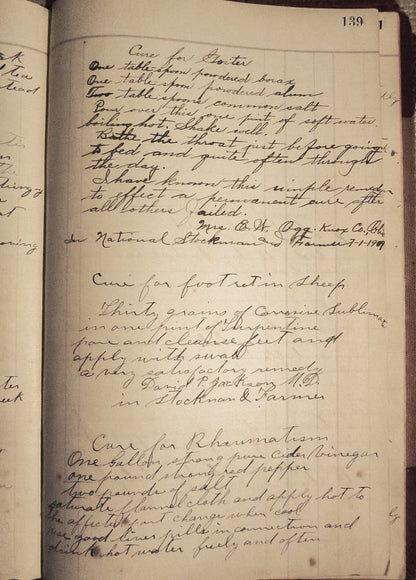 139
1
Cure for Goiter
One table spoon powdered borax
One table spoon powdered alum
Two table spoons common salt
Pour over this one pint of soft water
boiling hot. Shake well.
Bathe the throat just before going
to bed and quite often through
the day.
I have known this simple remedy
to effect a permanent cure after
all others failed.
Mrs. B. W. Ogg. Knox Co., Ohio
In National Stockman and Farmer 7-1-1909
Cure for foot rot in Sheep
Thirty grains of Corrosive Sublimate
in one pint of Turpentine
pare and cleanse feet and
apply with swab
a very satisfactory remedy
David P. Jackson M.D.
in Stockman & Farmer
Cure for Rheumatism
One Gallon strong pure cider vinegar
one pound strong red pepper
two pounds of salt
saturate flannel cloth and apply hot to
the affected part change when cool
use good liver pills in connection and
drink hot water freely and often